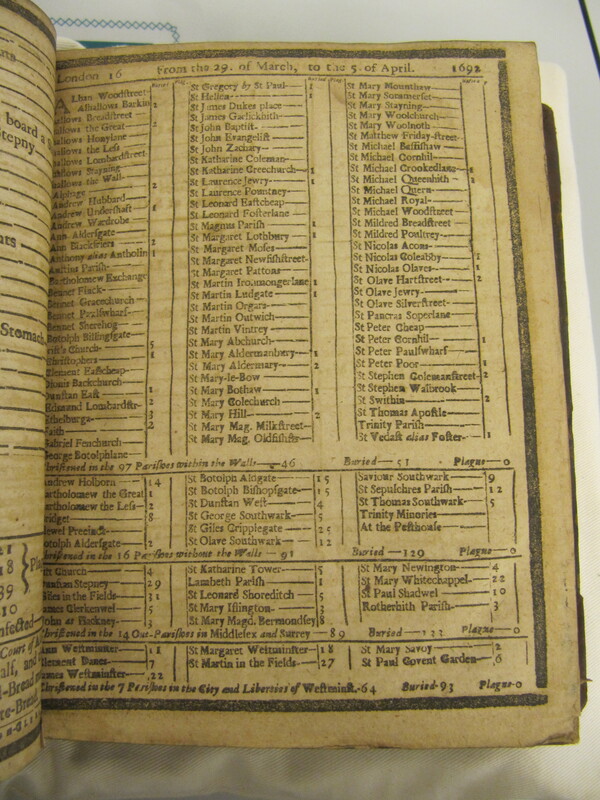 London 16 From the 29. of March, to the 5. of April. 1692
Buried Plag.
Alban Woodstreet
Alhallows Barkin 2
allows Breadstreet
allows the Great 2
allows Honylane
allows the Less
allows Lombardstreet
allows Stayning
allows the Wall 2
Alphage
Andrew Hubbard
Andrew Undershaft 1
Andrew Wardrobe
Ann Aldersgate
Ann Blackfriers 2
Anthony alias Antholin 1
Austins Parish
Bartholomew Exchange
Bennet Finck
Bennet Gracechurch
Bennet Paulswharf
Bennet Sherehog
Botolph Billingsgate
Christ's Church 5
Christophers 1
Clement Eastcheap
Dionis Backchurch
Dunstan East 1
Edmund Lombardstr 2
Ethelburga 3
Faith 2
Gabriel Fenchurch
George Botolphlane
St Gregory by St Paul 1
St Hellen 1
St James Dukes place
St James Garlickhith
St John Baptist
St John Evangelist
St John Zachary
St Katharine Coleman
St Katharine Creechurch 1
St Laurence Jewry 1
St Laurence Pountney
St Leonard Eastcheap
St Leonard Fosterlane
St Magnus Parish 1
St Margaret Lothbury 1
St Margaret Moses
St Margaret Newfishstreet
St Margaret Pattons
St Martin Ironmongerlane 1
St Martin Ludgate 1
St Martin Orgars
St Martin Outwich
St Martin Vintrey
St Mary Abchurch
St Mary Aldermanbery 1
St Mary Aldermary 2
St Mary-le-Bow
St Mary Bothaw 1
St Mary Colechurch
St Mary Hill 2
St Mary Mag. Milkstreet
St Mary Mag. Oldfishstr
St Mary Mounthaw
St Mary Summerset
St Mary Stayning
St Mary Woolchurch
St Mary Woolnoth
St Matthew Friday-street
St Michael Bassishaw
St Michael Cornhil
St Michael Crookedlane 1
St Michael Queenhith 1
St Michael Quern
St Michael Royal
St Michael Woodstreet
St Mildred Breadstreet
St Mildred Poultrey
St Nicolas Acons
St Nicolas Coleabby 1
St Nicolas Olaves 1
St Olave Hartstreet 2
St Olave Jewry
St Olave Silverstreet
St Pancras Soperlane
St Peter Cheap
St Peter Cornhil 1
St Peter Paulswharf
St Peter Poor 1
St Stephen Colemanstreet 2
St Stephen Walbrook
St Swithin 2
St Thomas Apostle
Trinity Parish
St Vedast alias Foster 1
Christened in the 97 Parishes within the Walls 46 Buried 51 Plague 0
Andrew Holborn 14
Bartholomew the Great 1
Bartholomew the Less 2
Bridget 8
Bridewel Precinct
Botolph Aldersgate 2
St Botolph Aldgate 15
St Botolph Bishopsgate 15
St Dunstan West 4
St George Southwark 5
St Giles Cripplegate 25
St Olave Southwark 12
Saviour Southwark 9
St Sepulchres Parish 12
St Thomas Southwark 5
Trinity Minories
At the Pesthouse
Christened in the 16 Parishes without the Walls 91 Buried 129 Plague 0
Christ Church 4
Dunstan Stepney 29
Giles in the Fields 31
James Clerkenwel 5
John at Hackney 3
St Katharine Tower 5
Lambeth Parish 1
St Leonard Shoreditch 5
St Mary Islington 3
St Mary Magd. Bermondsey 8
St Mary Newington 4
St Mary Whitechappel 22
St Paul Shadwel 10
Rotherhith Parish 3
Christened in the 14 Out-Parishes in Middlesex and Surrey 89 Buried Plague 0
Ann Westminster 11
Clement Danes 7
James Westminster 22
St Margaret Westminster 18
St Martin in the Fields 27
St Mary Savoy 2
St Paul Covent Garden 6
Christened in the 7 Parishes in the City and Liberties of Westminst. 64 Buried 93 Plague 0
board a
Stepny.
Stomach